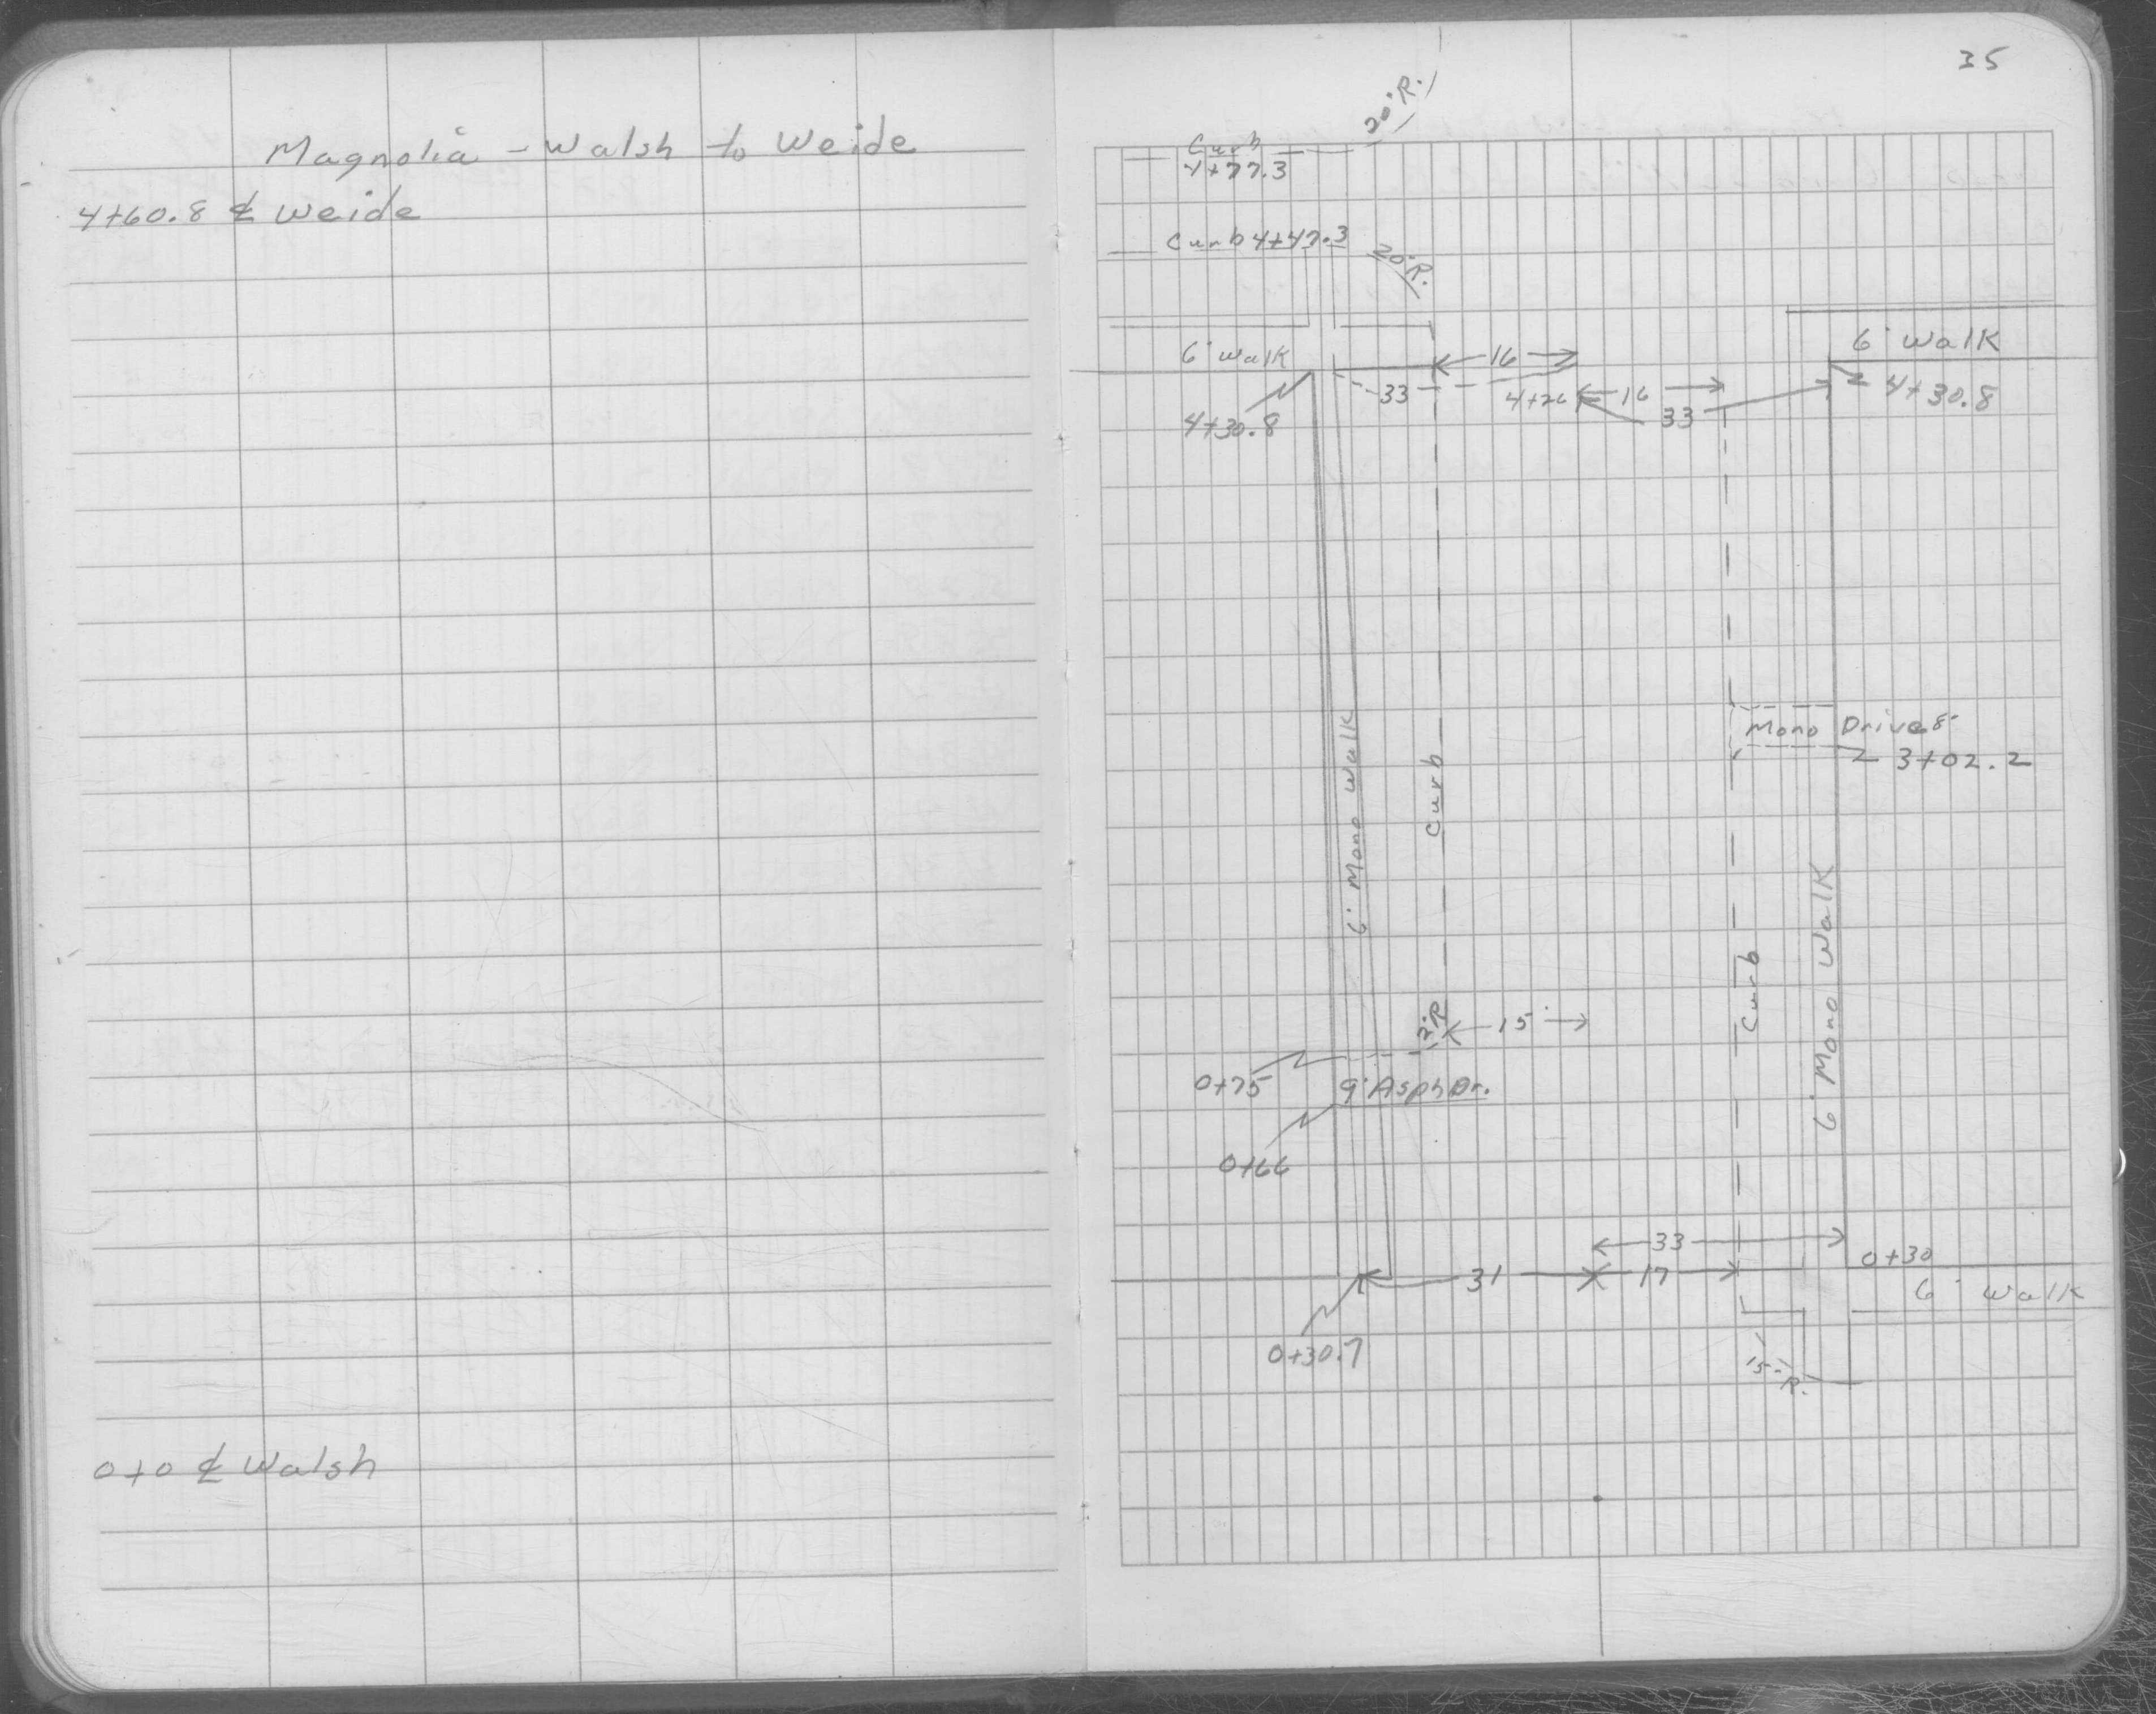 Magnolia - Walsh to Weide
4+60.8 ℄ Weide
0+0 ℄ Walsh
35
20' R.
Curb
4+77.3
Curb 4+47.3
20' R.
6' Walk
16
6' Walk
33
4+26
16
33
4+30.8
4+30.8
Mono Drive 8'
3+02.2
6' Mono Walk
Curb
Curb
6' Mono Walk
3' R
15'
0+75
9' Asph Dr.
0+66
33
0+30
31
17
6' Walk
0+30.7
15' R.